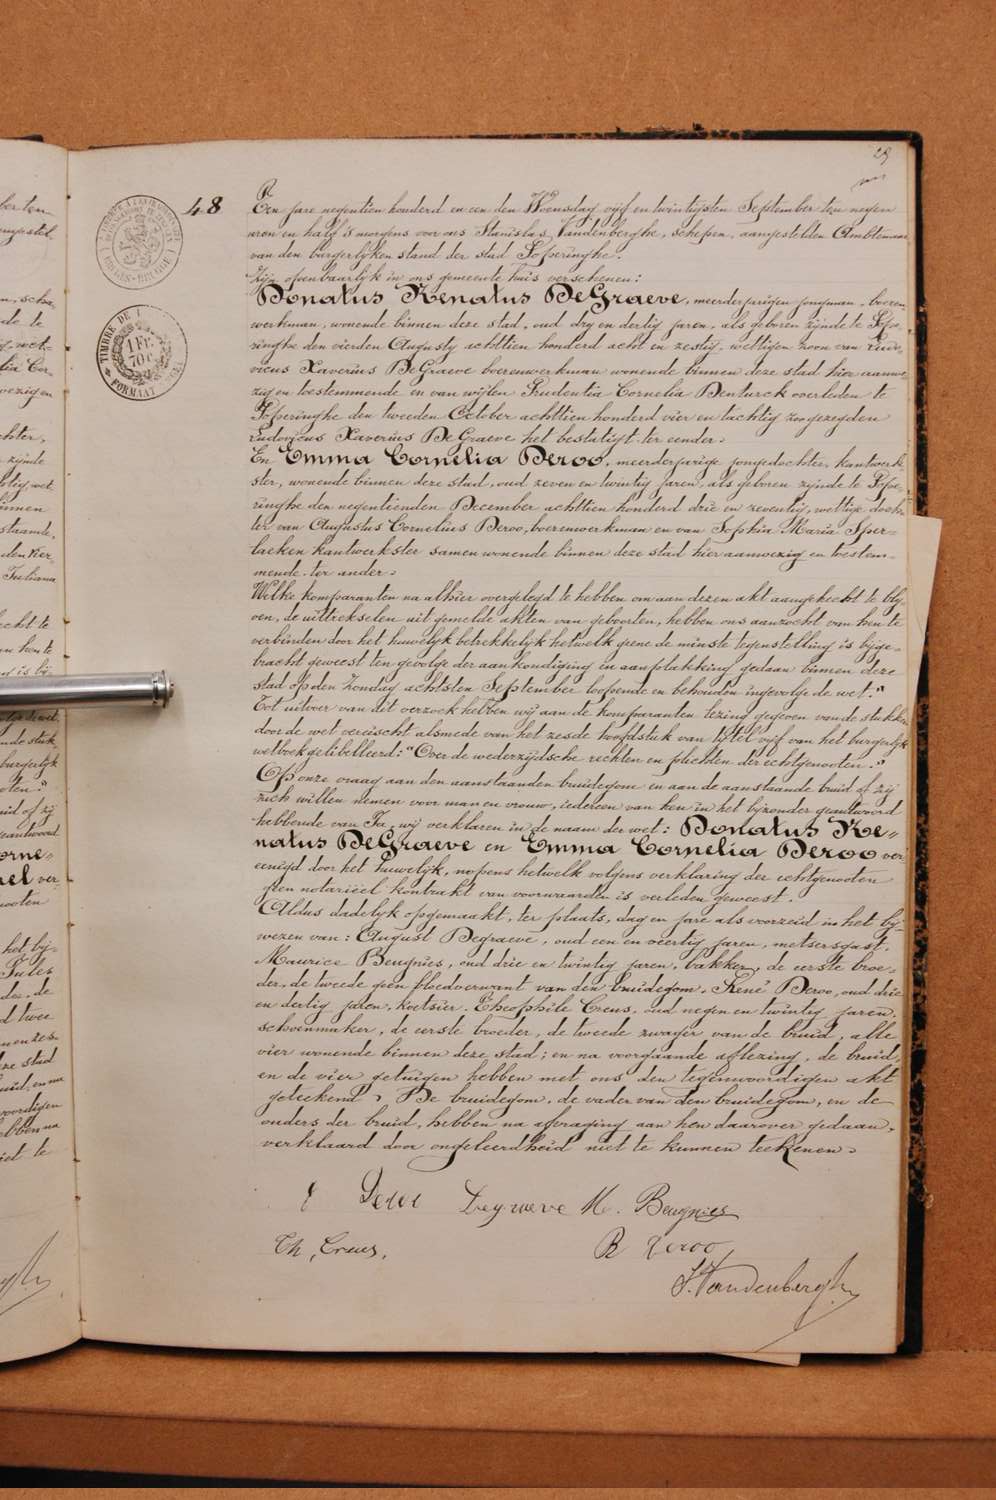 29
48
Ten jare negentien honderd en een den Woensdag vijf en twintigsten September ten negen
uren en half 's morgens voor ons Stanislas Vandenberghe, schepen, aangestelden Ambtenaar
van den burgerlyken stand der stad Poperinghe.
Zijn openbaarlyk in ons gemeente huis verschenen:
Donatus Renatus DeGraeve, meerderjarigen jongman, boeren
werkman, wonende binnen deze stad, oud dry en dertig jaren, als geboren zijnde te Pope-
ringhe den vierden Augusty achttien honderd acht en zestig, wettigen zoon van Ludo-
vicus Xaverius DeGraeve boerenwerkman wonende binnen deze stad hier aanwe-
zig en toestemmende en van wijlen Prudentia Cornelia Denturck overleden te
Poperinghe den tweeden October achttien honderd vier en tachtig zoo gezegden
Ludovicus Xaverius DeGraeve het bestatigt ter eender.
En Emma Cornelia Deroo, meerderjarige jongedochter, kantwerk-
ster, wonende binnen deze stad, oud zeven en twintig jaren, als geboren zijnde te Pope-
ringhe den negentienden December achttien honderd drie en zeventig, wettige doch-
ter van Augustus Cornelius Deroo, boerenwerkman en van Sophia Maria Sper-
laeken kantwerkster samen wonende binnen deze stad hier aanwezig en toestem-
mende ter ander.
Welke komparanten na alhier overgelegd te hebben om aan dezen akt aangehecht te bly-
ven, de uittrekselen uit gemelde akten van geboorten, hebben ons aanzocht van hen te
verbinden door het huwelyk betrekkelyk hetwelk geene de minste tegenstelling is bijge-
bracht geweest ten gevolge der aankondiging in aanplakking gedaan binnen deze
stad op den Zondag achtsten September loopende en behouden ingevolge de wet."
Tot uitvoer van dit verzoek hebben wij aan de komparanten lezing gegeven van de stukken
door de wet vereischt alsmede van het zesde hoofdstuk van Titel vijf van het burgerlijk
wetboek gelibelleerd: "Over de wederzijdsche rechten en plichten der echtgenooten."
Op onze vraag aan den aanstaanden bruidegom en aan de aanstaande bruid of zij
zich willen nemen voor man en vrouw, iedereen van hen in het bijzonder geantwoord
hebbende van Ja, wij verklaren in de naam der wet: Donatus Re-
natus DeGraeve en Emma Cornelia Deroo ver-
eenigd door het huwelijk, nopens hetwelk volgens verklaring der echtgenooten
geen notarieel kontrakt van voorwaarden is verleden geweest.
Aldus dadelyk opgemaakt, ter plaats, dag en jare als voorzeid in het bij-
wezen van: August Degraeve, oud een en veertig jaren, metsersgast,
Maurice Beugnies, oud drie en twintig jaren, bakker, de eerste broe-
der, de tweede geen bloedverwant van den bruidegom, René Deroo, oud drie
en dertig jaren, koetsier, Théophile Creus, oud negen en twintig jaren,
schoenmaker, de eerste broeder, de tweede zwager van de bruid, alle
vier wonende binnen deze stad; en na voorgaande aflezing, de bruid,
en de vier getuigen hebben met ons den tegenwoordigen akt
geteekend. De bruidegom, de vader van den bruidegom, en de
ouders der bruid, hebben na afvraging aan hen daarover gedaan,
verklaard door ongeleerdheid niet te kunnen teekenen.
Degraeve M. Beugnies
Th. Creus, R Deroo
S. Vandenberghe
TIMBRE DE 1 Fr. 70 c.
FORMAAT